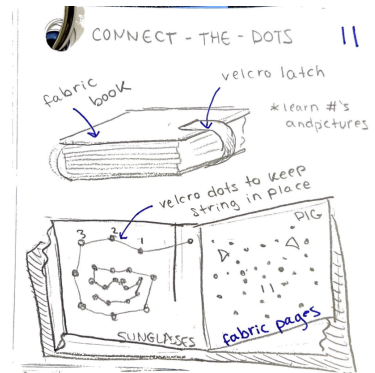 CONNECT - THE - DOTS 11
fabric
book
velcro latch
* learn #'s
and pictures
velcro dots to keep
string in place
3 2 1
PIG
SUNGLASSES
fabric pages